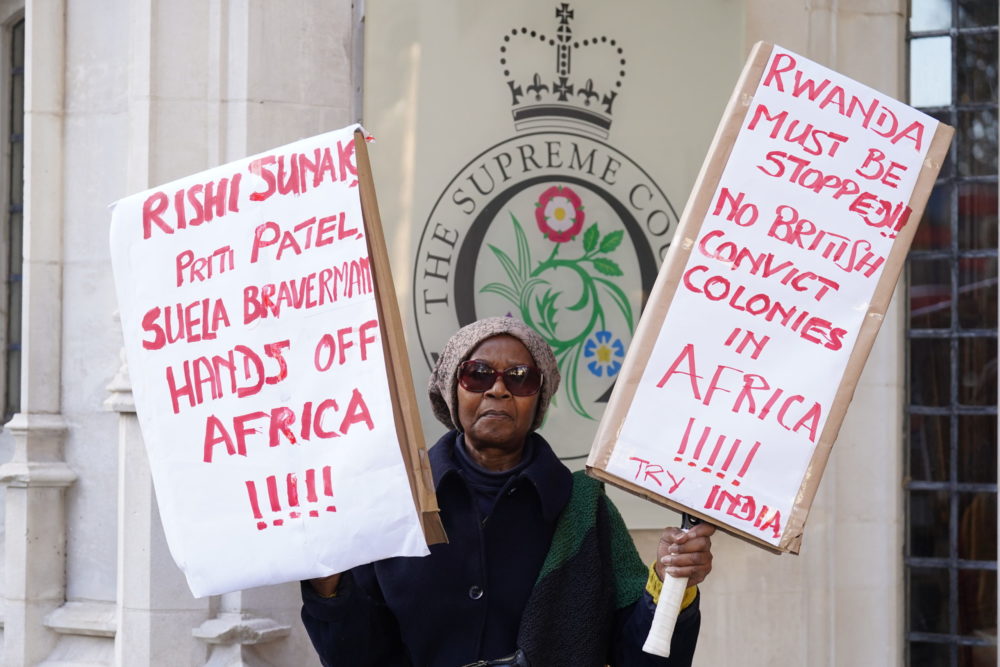 RISHI SUNAK,
PRITI PATEL,
SUELA BRAVERMAN
HANDS OFF
AFRICA
!!!!!
THE SUPREME COU
RWANDA
MUST BE
STOPPED!!
NO BRITISH
CONVICT
COLONIES
IN
AFRICA
!!!!!
TRY INDIA